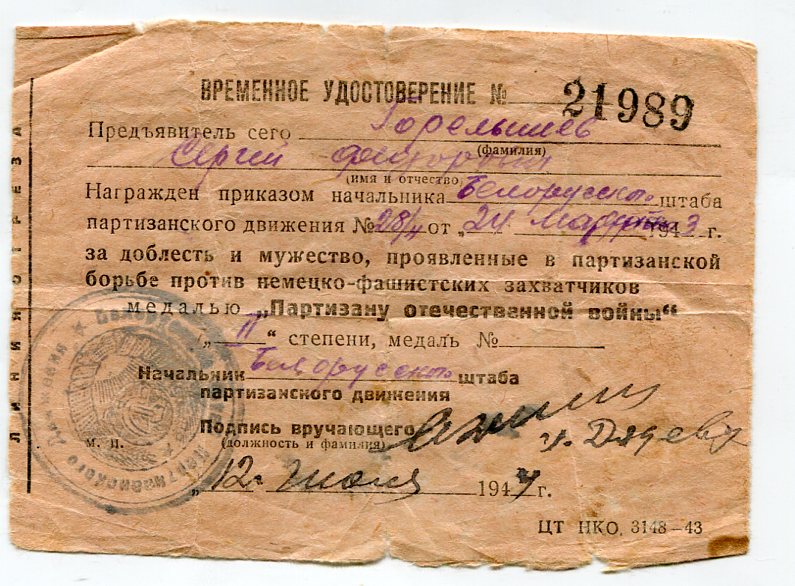 ВРЕМЕННОЕ УДОСТОВЕРЕНИЕ № 21989
Предъявитель сего Горелышев
(фамилия)
Сергей
(имя и отчество)
Награжден приказом начальника Белорусского штаба
партизанского движения № 28/н от „24 марта 1943 г.
за доблесть и мужество, проявленные в партизанской
борьбе против немецко-фашистских захватчиков
медалью „Партизану отечественной войны“
„II“ степени, медаль №
Начальник Белорусского штаба
партизанского движения
Подпись вручающего
(должность и фамилия)
М. П.
„12. июля 1944 г.
ЦТ НКО. 3148—43
ЛИНИЯ ОТРЕЗА
Партизанского Движения